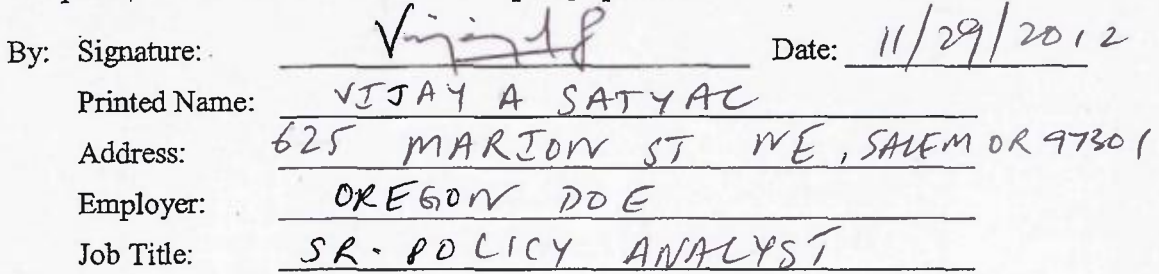 By: Signature: Date: 11/29/2012
Printed Name: VIJAY A SATYAC
Address: 625 MARION ST NE, SALEM OR 97301
Employer: OREGON DOE
Job Title: SR. POLICY ANALYST